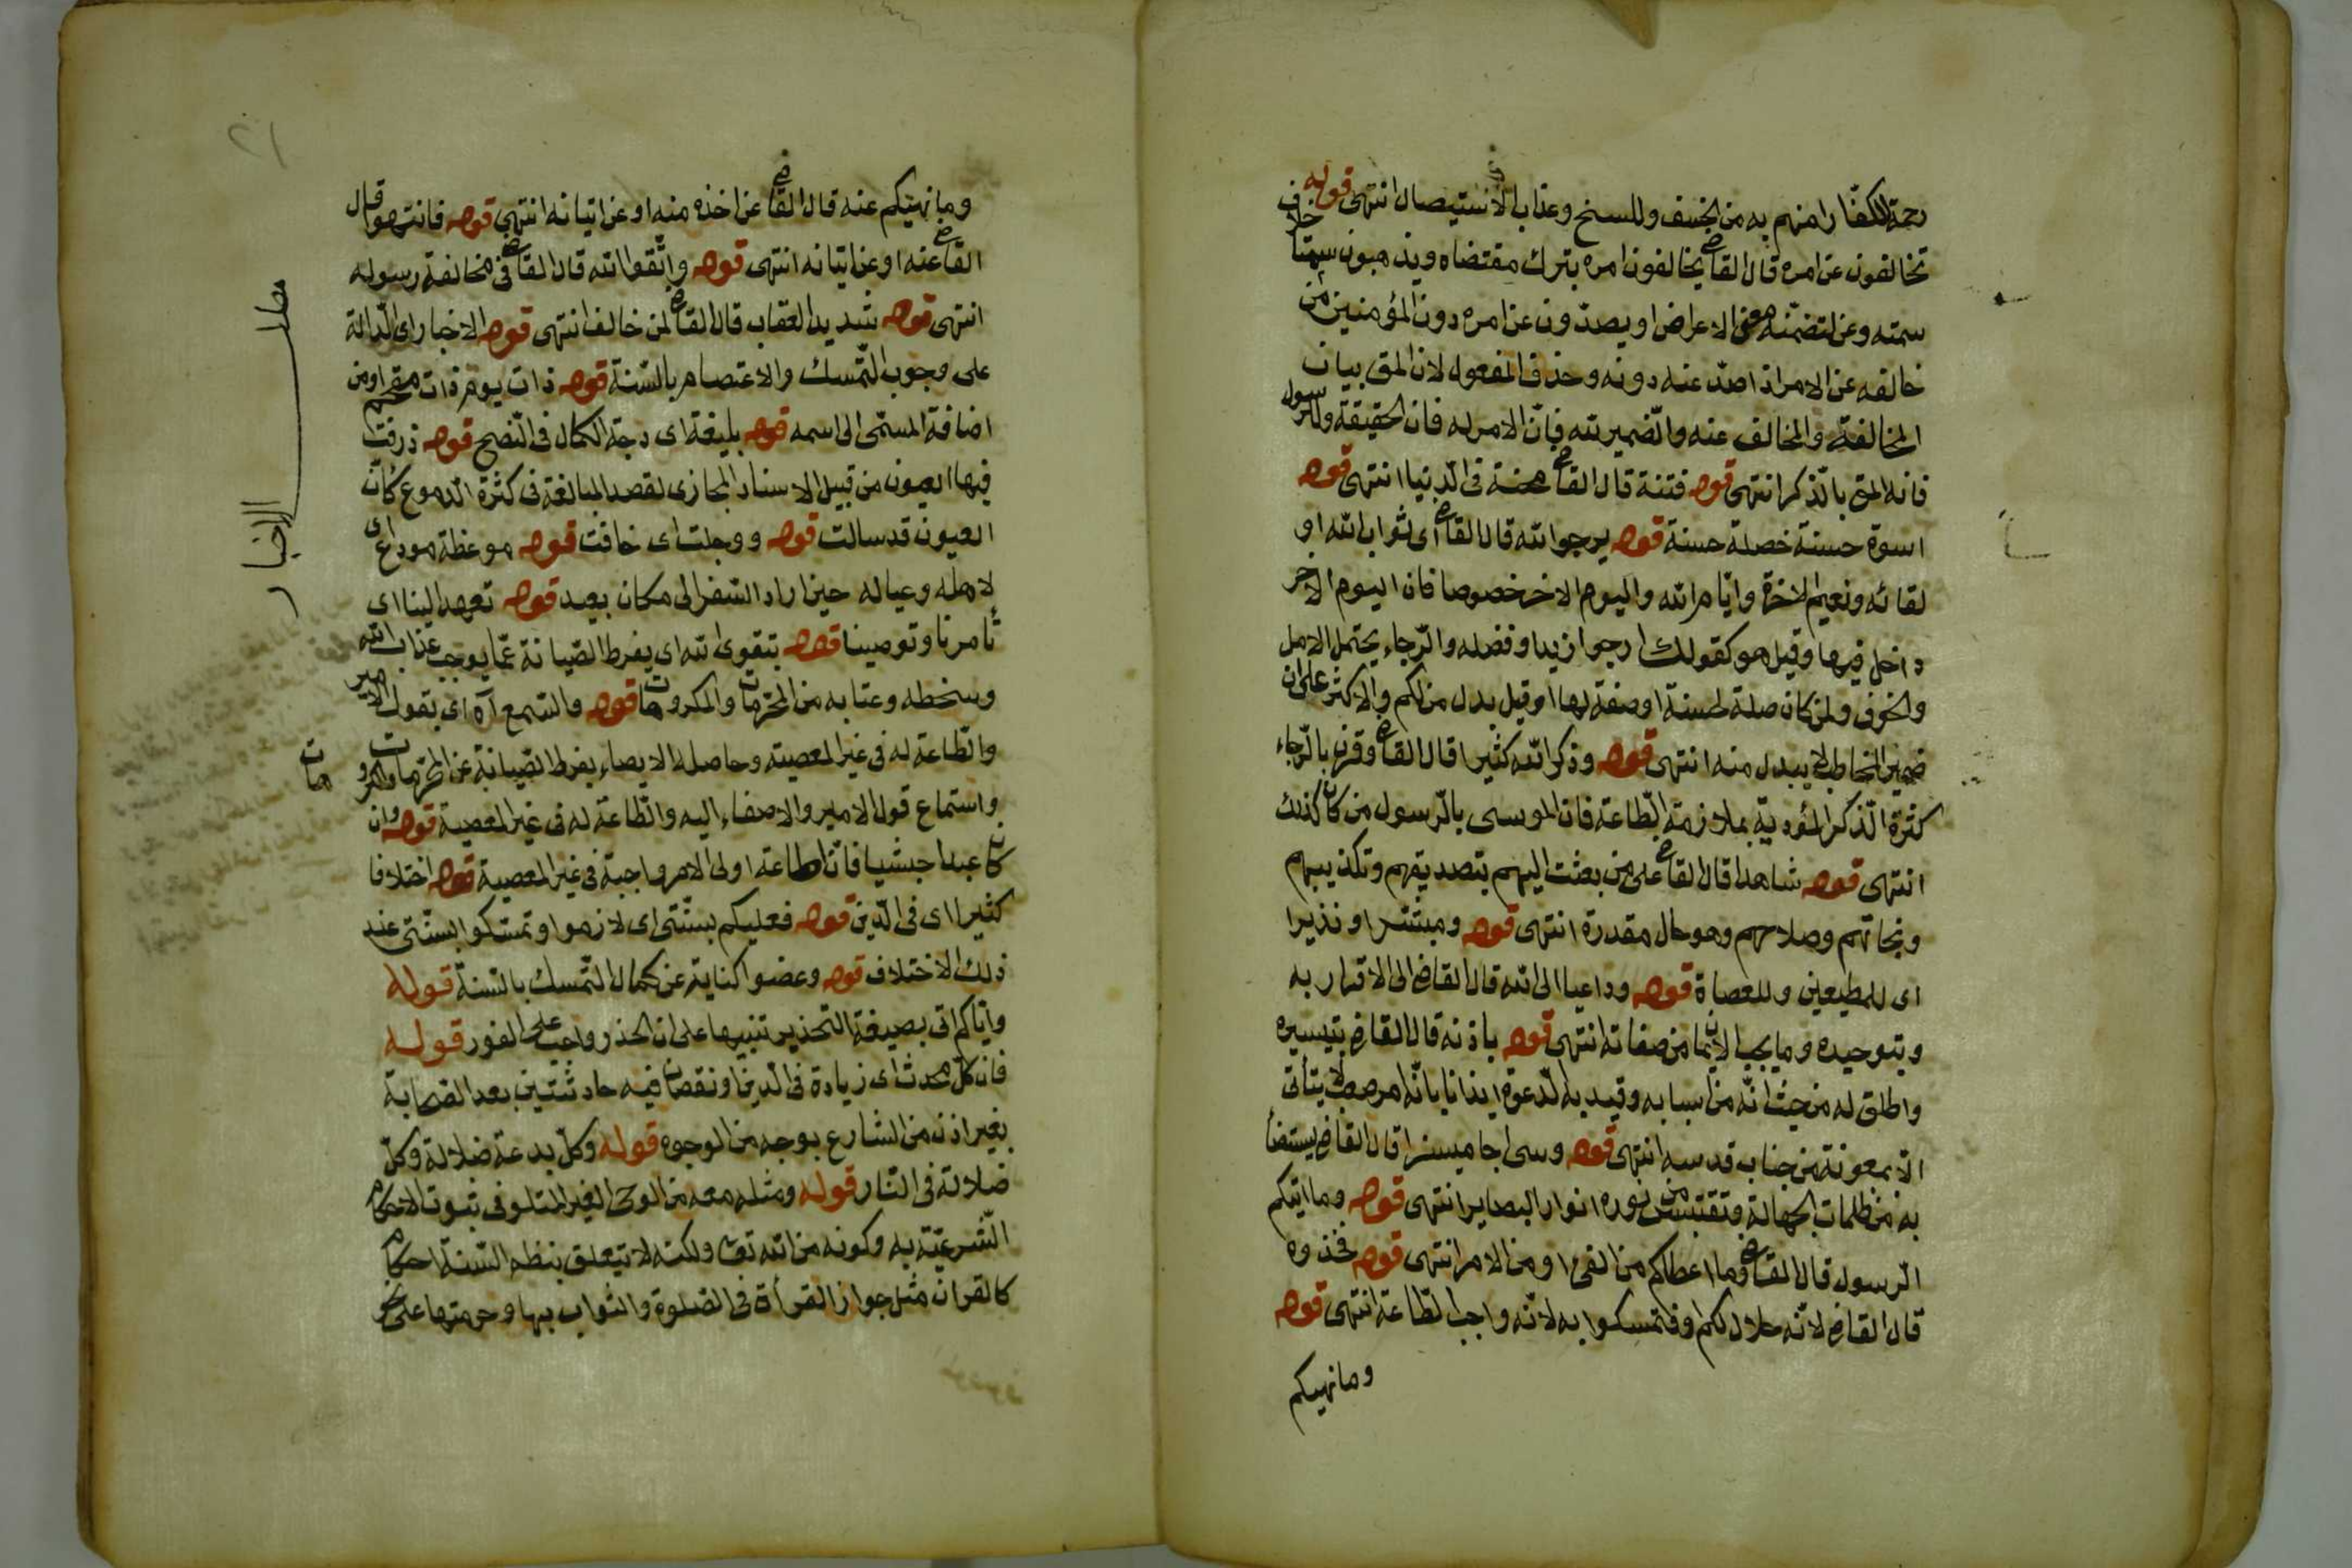 رحمة للكفار امنهم به من الخسف والمسخ وعذاب الاستيصال انتهى قوله
تخالفون عن امره قال القاضى يخالفون امره بترك مقتضاه ويذهبون سمتا خلاف
سمته وعن لتضمنه معنى الاعراض او يصدون عن امره دون المؤمنين من
خالفه عن الامر اذا صد عنه دونه وحذف المفعول لان المق بيان
المخالفة والمخالف عنه والضمير لله فان الامر له فان الحقيقة وللرسول
فانه المق بالذكر انتهى قوله فتنة قال القاضى محنة فى الدنيا انتهى قوله
اسوة حسنة خصلة حسنة قوله يرجوا الله قال القاضى اى ثواب الله او
لقائه ونعيم الاخرة وايام الله واليوم الاخر خصوصا فان اليوم الاخر
داخل فيها وقيل هو كقولك ارجوا زيدا وفضله والرجاء يحتمل الامل
والخوف ولمن كان صلة لحسنة او صفة لها او قيل بدل من لكم والاكثر على ان
ضمير المخاطب لا يبدل منه انتهى قوله وذكر الله كثيرا قال القاضى وقرن بالرجاء
كثرة الذكر المؤدية بملازمة الطاعة فان الموسى بالرسول من كان كذلك
انتهى قوله شاهدا قال القاضى على من بعثت اليهم بتصديقهم وتكذيبهم
ونجاتهم وصلاحهم وهو حال مقدرة انتهى قوله ومبشرا ونذيرا
اى للمطيعين وللعصاة قوله وداعيا الى الله قال القاض الى الاقرار به
وبتوحيده وما يجب الايمان من صفاته انتهى قوله باذنه قال القاض بتيسيره
واطلق له من حيث انه من اسبابه وقيد به الدعوة ايذانا بانه امر صعب لا يتأتى
الا بمعونة من جناب قدسه انتهى قوله وسراجا منيرا قال القاض يستضأ
به من ظلمات الجهالة وتقتبس من نوره انوار البصاير انتهى قوله وما اتيكم
الرسول قال القاضى وما اعطاكم من الفئ او من الامر انتهى قوله فخذوه
قال القاض لانه حلال لكم او فتمسكوا به لانه واجب الطاعة انتهى قوله
وما نهيكم
٢١
وما نهيكم عنه قال القاضى عن اخذه منه او عن اتيانه انتهى قوله فانتهوا قال
القاضى عنه او عن اتيانه انتهى قوله واتقوا الله قال القاضى فى مخالفة رسوله
انتهى قوله شديد العقاب قال القاضى لمن خالف انتهى قوله الاخبار اى الدالة
على وجوب التمسك والاعتصام بالسنة قوله ذات يوم ذات مقحم او من
اضافة المسمى الى اسمه قوله بليغة اى درجة الكمال فى النصح قوله ذرفت
فيها العيون من قبيل الاسناد المجازى لقصد المبالغة فى كثرة الدموع كأن
العيون قد سالت قوله ووجلت اى خافت قوله موعظة مودع اى
لاهله وعياله حين اراد السفر الى مكان بعيد قوله تعهد الينا اى
تأمرنا وتوصينا قوله بتقوى الله اى بفرط الصيانة عما يوجب عذاب الله
وسخطه وعتابه من المحرمات والمكروهات قوله والسمع آه اى بقول الامير
والطاعة له فى غير المعصية وحاصله الايصاء بفرط الصيانة عن المحرمات والمكروهات
واستماع قول الامير والاصغاء اليه والطاعة له فى غير المعصية قوله وان
كان عبدا حبشيا فان اطاعة اولى الامر واجبة فى غير المعصية قوله اختلافا
كثيرا اى فى الدين قوله فعليكم بسنتى اى لازموا وتمسكوا بسنتى عند
ذلك الاختلاف قوله وعضوا كناية عن كمال التمسك بالسنة قوله
واياكم اتى بصيغة التحذير تنبيها على ان الحذر واجب على الفور قوله
فان كل محدث اى زيادة فى الدين او نقصان فيه حادثتين بعد الصحابة
بغير اذن من الشارع بوجه من الوجوه قوله وكل بدعة ضلالة وكل
ضلالة فى النار قوله ومثله معه من الوحى الغير المتلو فى ثبوت الاحكام
الشرعية به وكونه من الله تعا ولكنه لا يتعلق بنظم السنة احكام
كالقران مثل جواز القرأة فى الصلوة والثواب بها وحرمتها على نحو
مطلب الاخبار